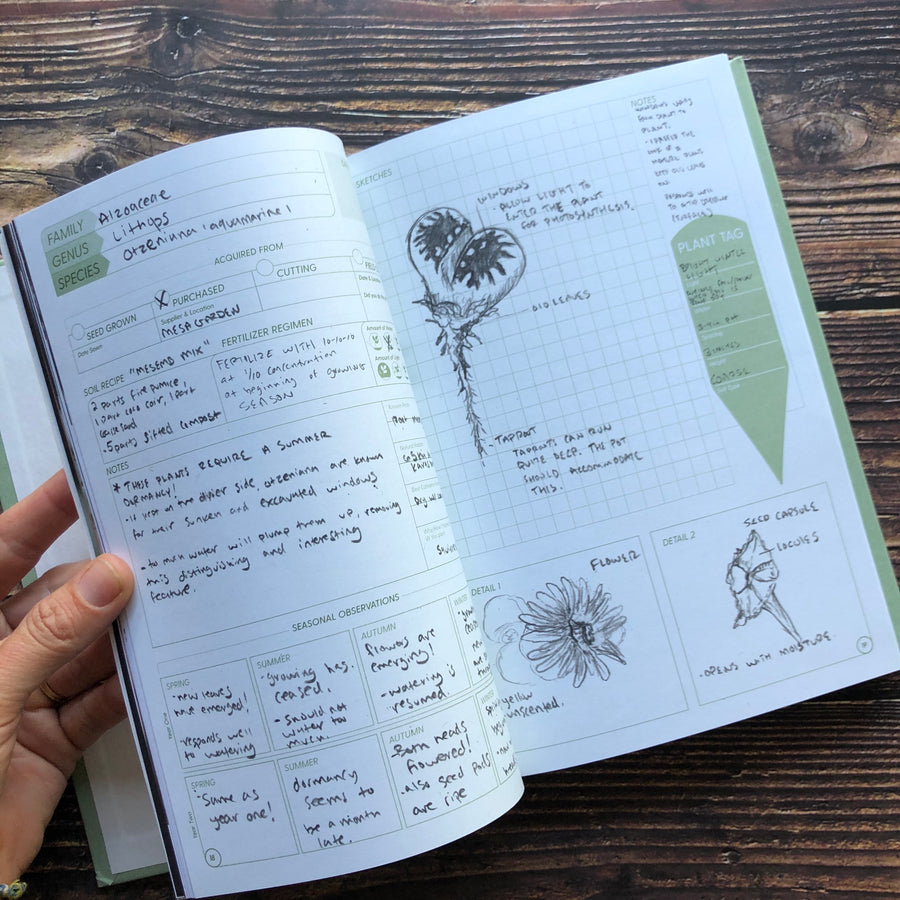 FAMILY
Aizoaceae
GENUS
Lithops
SPECIES
otzeniana 'aquamarine'
ACQUIRED FROM
SEED GROWN
Date Sown
X PURCHASED
Supplier & Location
MESA GARDEN
CUTTING
FIELD
SOIL RECIPE "MESEMB MIX"
2 parts fine pumice,
1 part coco coir, 1 part
sand
.5 parts sifted compost
FERTILIZER REGIMEN
FERTILIZE WITH 10-10-10
at 1/10 concentration
at beginning of growing
SEASON
Amount of Water
Amount of Light
NOTES
* THESE PLANTS REQUIRE A SUMMER
DORMANCY!
- if kept on the drier side, otzeniana are known
for their sunken and excavated windows
- to much water will plump them up, removing
this distinguishing and interesting
feature.
SEASONAL OBSERVATIONS
Year One
SPRING
- new leaves
have emerged!
- responds well
to watering
SUMMER
- growing has
ceased.
- should not
water too
much.
AUTUMN
flowers are
emerging!
- watering is
resumed.
WINTER
Year Two
SPRING
- Same as
year one!
SUMMER
dormancy
seems to
be a month
late.
AUTUMN
- Both heads
flowered!
- also seed pods
are ripe
WINTER
18
SKETCHES
WINDOWS
ALLOW LIGHT TO
ENTER THE PLANT
FOR PHOTOSYNTHESIS.
- OLD LEAVES
- TAPROOT
TAPROOTS CAN RUN
QUITE DEEP. THE POT
SHOULD ACCOMMODATE
THIS.
NOTES
WINDOWS VARY
FROM PLANT TO
PLANT.
- I PREFER THE
LOOK OF A
PLANT
OLD LEAVES
ON.
PLANT TAG
BRIGHT
3-4 in pot
Height
DETAIL 1
FLOWER
yellow
unscented.
DETAIL 2
SEED CAPSULE
LOCULES
- OPENS WITH MOISTURE.
19